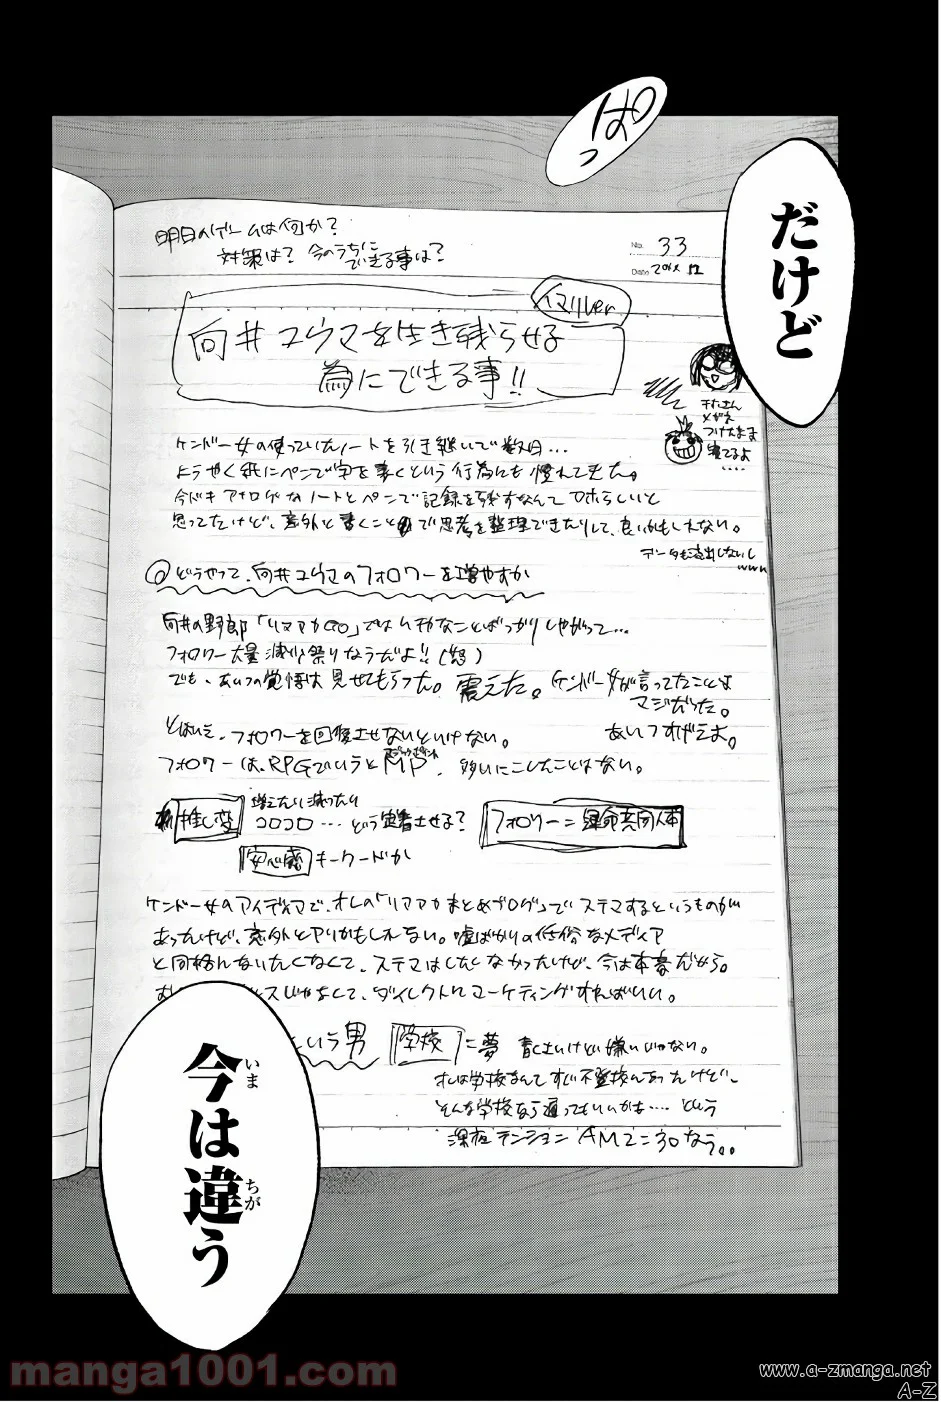 ぱっ
だけど
明日のゲームは何か?
対策は? 今のうちに
できる事は?
No. 33
Date 20XX 12
イマリver
向井ユウマを生き残らせる
為にできる事!!
メガネ
つけたまま
寝てるよ
....
ケンドー女の使っていたノートを引き継いで数日...
ようやく紙にペンで字を書くという行為にも慣れてきた。
今どきアナログなノートとペンで記録を残すなんてアホらしいと
思ってたけど、意外と書くことで思考を整理できたりして、良いかもしれない。
データも流出しないし
www
◎どうやって、向井ユウマのフォロワーを増やすか
向井の野郎「リアアカGO」では ばっかりしやがって...
フォロワー大量減少祭りなうだよ!!(怒)
でも、あいつの覚悟は見せてもらった。震えた。ケンドー女が言ってたことは
マジだった。
あいつすげえよ。
とはいえ、フォロワーを回復させないといけない。
フォロワーは、RPGでいうとMP、多いにこしたことはない。
推し変
増えたり減ったり
コロコロ...どう定着させる?
フォロワー=運命共同体
安心感 キーワードか
ケンドー女のアイディアで、オレの「リアアカまとめブログ」でステマするというものが
あったけど、意外とアリかもしれない。嘘ばかりの低俗なメディア
と同格になりたくなくて、ステマはしたくなかったけど、今は本音だから。
じゃなくて、ダイレクトにマーケティングすればいい。
という男 学校に夢 青くさいけど嫌いじゃない。
オレは学校なんてすぐ不登校んなったけど、
そんな学校なら通ってもいいかも....という
深夜テンション AM2:30なう。。
今は違う
いま
ちが
manga1001.com
www.a-zmanga.net
A-Z